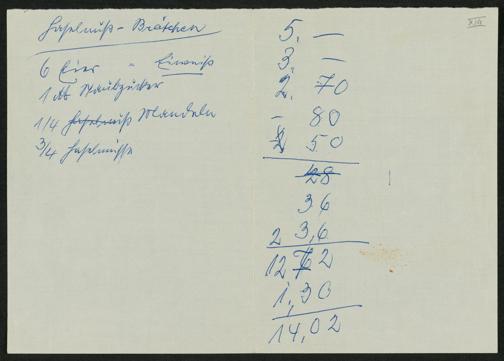 Haselnuß-Brötchen
6 Eier - Eiweiß
1 ℔ Staubzucker
1/4 Haselnuß Mandeln
3/4 Haselnüsse
XIII
5. —
3. —
2. 70
- 80
2 50
28
36
2 3,6
12 62
1,30
14,02